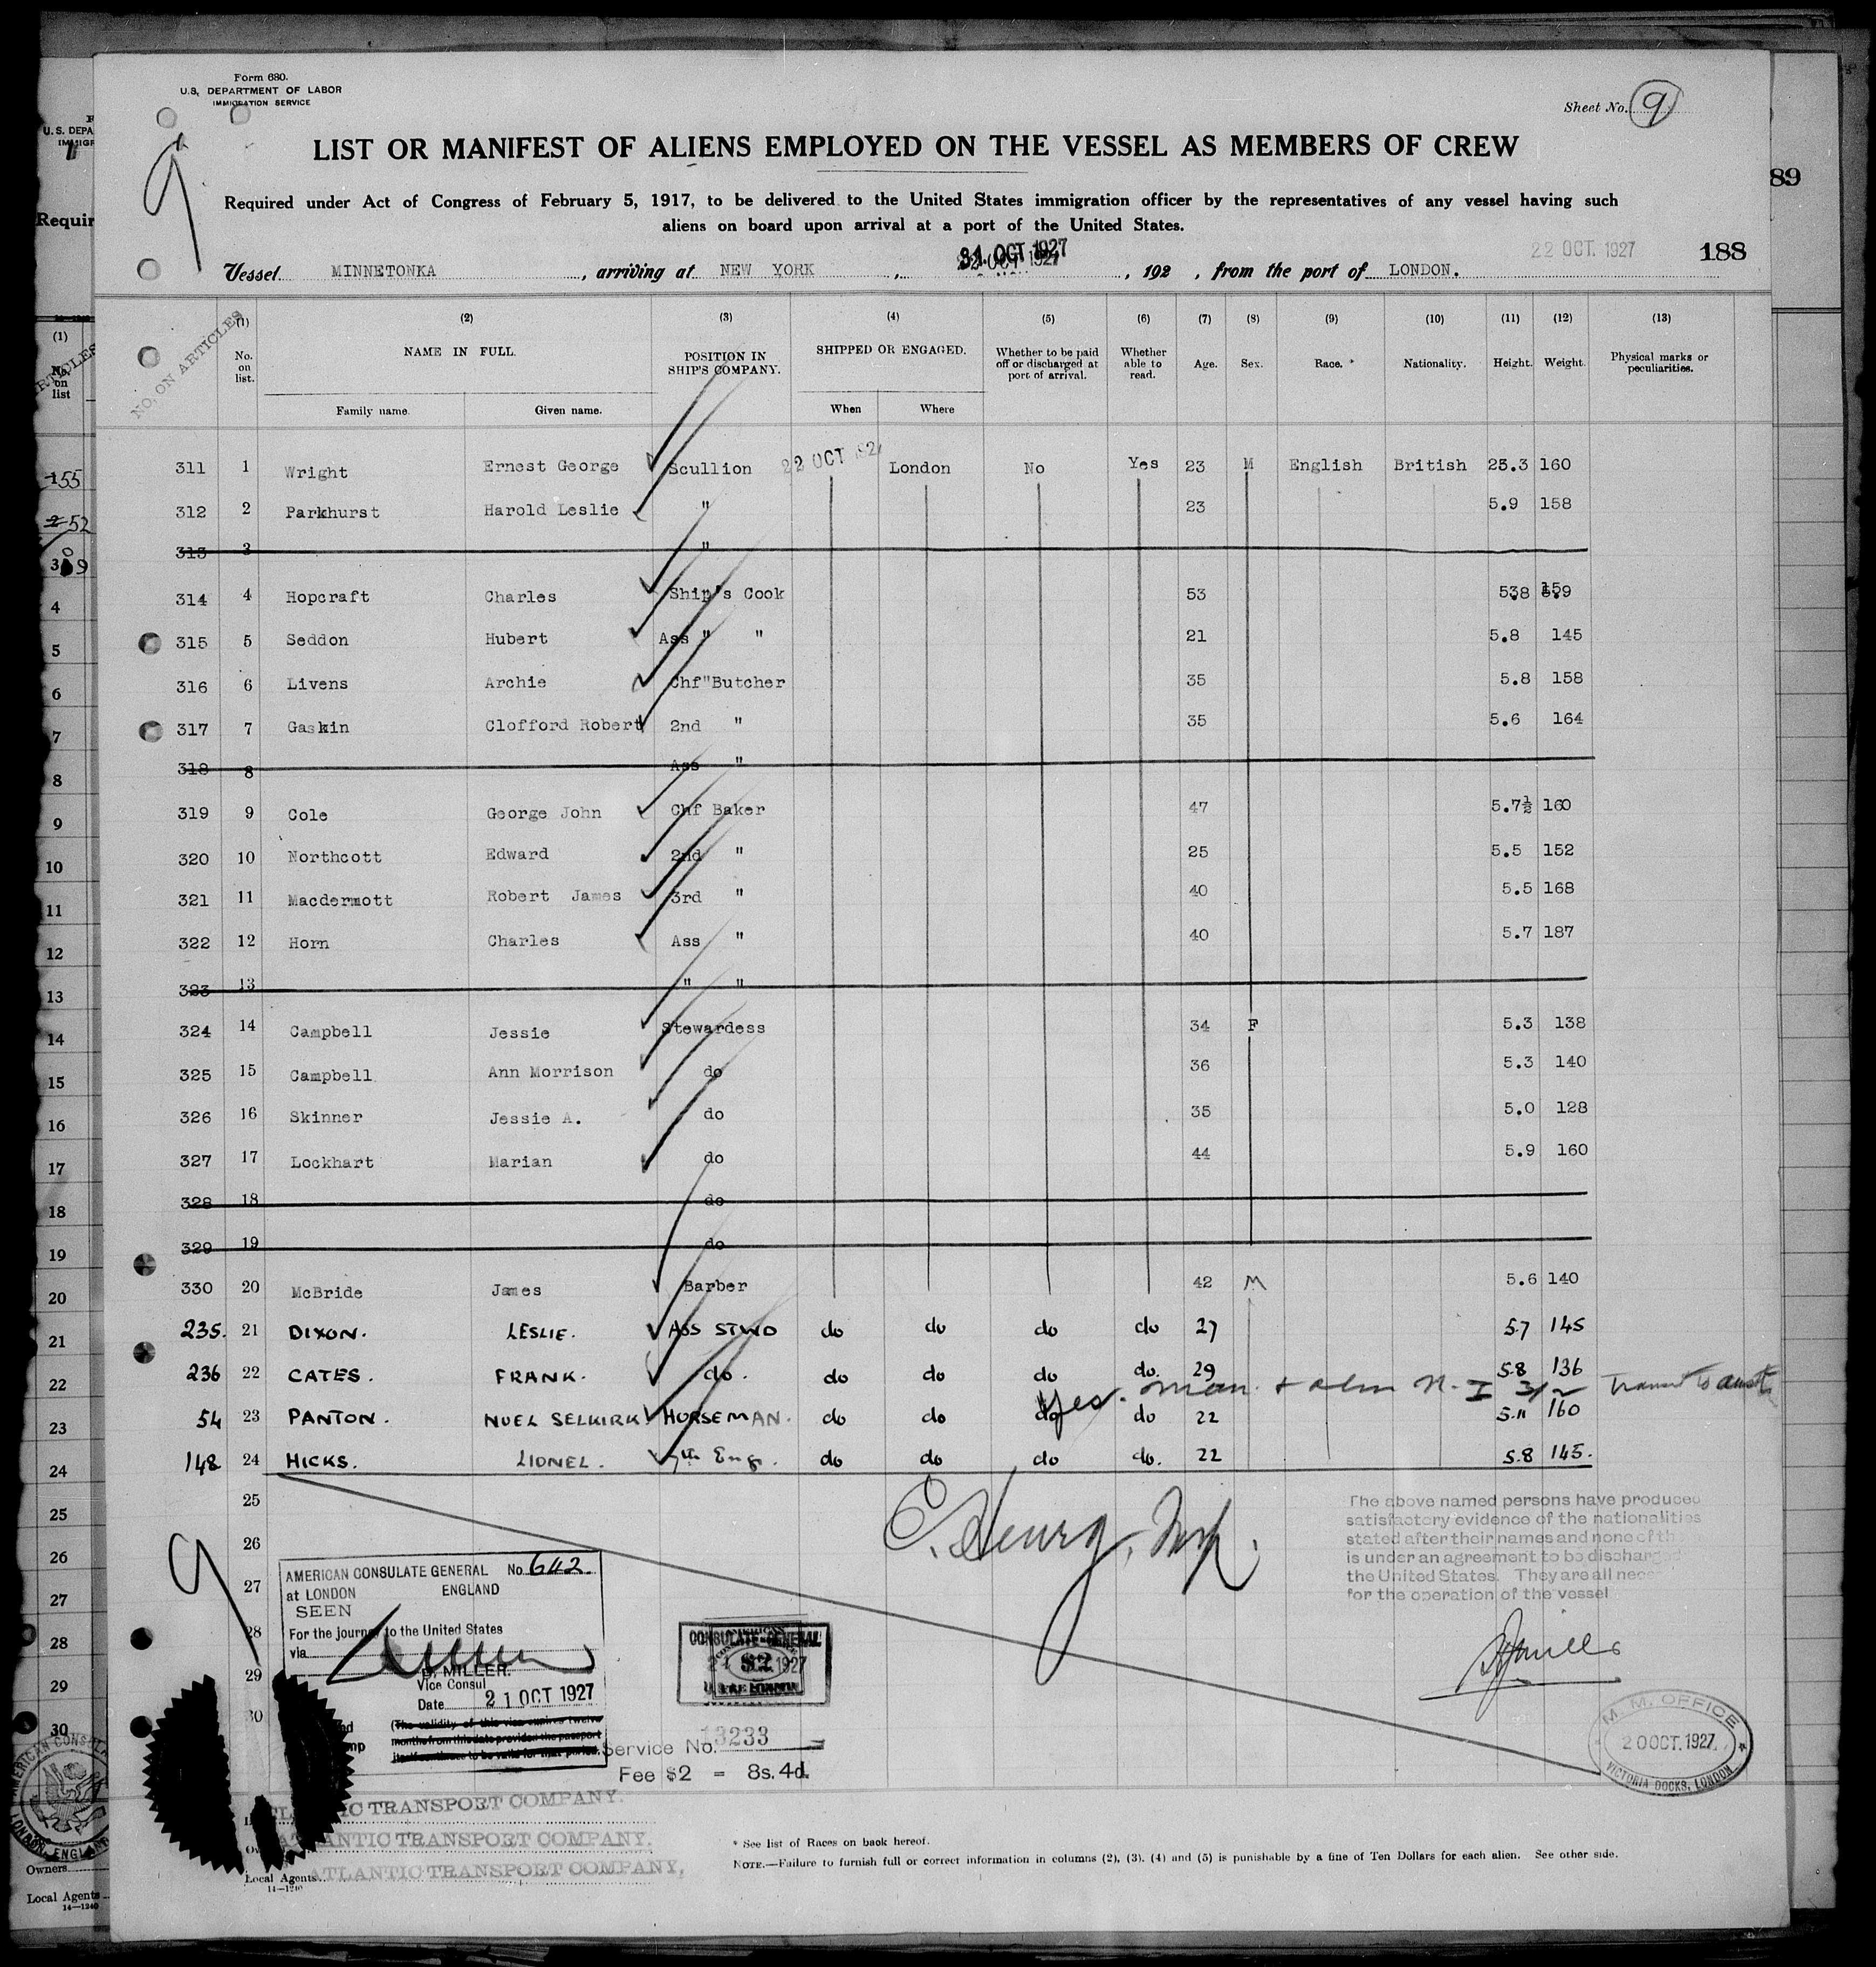 Form 680.
U.S. DEPARTMENT OF LABOR
IMMIGRATION SERVICE
Sheet No. 9
9
LIST OR MANIFEST OF ALIENS EMPLOYED ON THE VESSEL AS MEMBERS OF CREW
Required under Act of Congress of February 5, 1917, to be delivered to the United States immigration officer by the representatives of any vessel having such
aliens on board upon arrival at a port of the United States.
22 OCT. 1927 188
Vessel MINNETONKA, arriving at NEW YORK, 31. OCT 1927, 192 , from the port of LONDON.
NO. ON ARTICLES
(1) (2) (3) (4) (5) (6) (7) (8) (9) (10) (11) (12) (13)
No. on list. NAME IN FULL. POSITION IN SHIP'S COMPANY. SHIPPED OR ENGAGED. Whether to be paid off or discharged at port of arrival. Whether able to read. Age. Sex. Race. * Nationality. Height. Weight. Physical marks or peculiarities.
Family name. Given name. When Where
311 1 Wright Ernest George Scullion 22 OCT 192 London No Yes 23 M English British 25.3 160
312 2 Parkhurst Harold Leslie " 23 5.9 158
313 3 "
314 4 Hopcraft Charles Ship's Cook 53 538 159
315 5 Seddon Hubert Ass " " 21 5.8 145
316 6 Livens Archie Chf"Butcher 35 5.8 158
317 7 Gaskin Clofford Robert 2nd " 35 5.6 164
318 8 Ass "
319 9 Cole George John Chf Baker 47 5.7½ 160
320 10 Northcott Edward 2nd " 25 5.5 152
321 11 Macdermott Robert James 3rd " 40 5.5 168
322 12 Horn Charles Ass " 40 5.7 187
323 13 " "
324 14 Campbell Jessie Stewardess 34 F 5.3 138
325 15 Campbell Ann Morrison do 36 5.3 140
326 16 Skinner Jessie A. do 35 5.0 128
327 17 Lockhart Marian do 44 5.9 160
328 18 do
329 19 do
330 20 McBride James Barber 42 M 5.6 140
235. 21 DIXON. LESLIE. ASS STWD do do do do 27 5.7 145
236 22 CATES. FRANK. do. do do do do. 29 5.8 136
Yes.
54 23 PANTON. NUEL SELKIRK HORSEMAN. do do do do 22 5.11 160
148 24 HICKS. LIONEL. 7th Eng. do do do do. 22 5.8 145.
25
26
27
28
29
30
C. Henry, Insp.
The above named persons have produced
satisfactory evidence of the nationalities
stated after their names and none of th
is under an agreement to be discharged
the United States. They are all nece
for the operation of the vessel
9
AMERICAN CONSULATE GENERAL No. 642
at LONDON ENGLAND
SEEN
For the journey to the United States
via
MILLER.
Vice Consul
Date 21 OCT 1927
(The validity of this visa expires twelve
months from this date provided the passport
itself continues to be valid for that period.
CONSULATE-GENERAL
$2
1927
Service No. 13233
Fee $2 = 8s. 4d.
M. M. OFFICE
20 OCT. 1927
VICTORIA DOCKS, LONDON
ATLANTIC TRANSPORT COMPANY.
ATLANTIC TRANSPORT COMPANY.
Local Agents ATLANTIC TRANSPORT COMPANY,
14—1240
* See list of Races on back hereof.
NOTE.—Failure to furnish full or correct information in columns (2), (3), (4) and (5) is punishable by a fine of Ten Dollars for each alien. See other side.
U.S. DEPA
IMMIGR
Requir
89
(1)
No. on list
155
52
4
5
6
7
8
9
10
11
12
13
14
15
16
17
18
19
20
21
22
23
24
25
26
27
28
29
30
Owners
Local Agents
14—1240